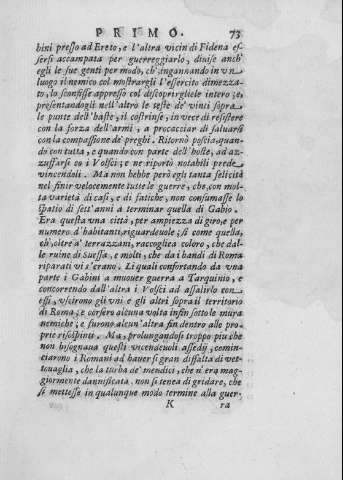 PRIMO. 73
bini presso ad Ereto, e l'altra vicin di Fidena es
sersi accampata per guerreggiarlo, diuise anch'
egli le sue genti per modo, ch'ingannando in vn
luogo il nemico col mostrargli l'essercito dimezza-
to, lo sconfisse appresso col discoprirgliele intero; e,
presentandogli nell'altro le teste de' vinti sopra
le punte dell'haste, il costrinse, in vece di resistere
con la forza dell'armi, a procacciar di saluarsi
con la compassione de' preghi. Ritornò poscia quan-
di con tutta, e quando con parte dell'hoste, ad az-
zuffarsi co i Volsci; e ne riportò notabili prede
vincendoli. Ma non hebbe però egli tanta felicità
nel finir velocemente tutte le guerre, che, con mol-
ta varietà di casi, e di fatiche, non consumasse lo
spatio di sett'anni a terminar quella di Gabio.
Era questa vna città, per ampiezza di giro, e per
numero d'habitanti, riguardeuole; sì come quella,
ch', oltre a' terrazzani, raccogliea coloro, che dal-
le ruine di Suessa, e molti, che da i bandi di Roma
riparati vi s'erano. Li quali confortando da vna
parte i Gabini a muouer guerra a Tarquinio, e
concorrendo dall'altra i Volsci ad assalirlo con
essi, vscirono gli vni e gli altri sopra il territorio
di Roma; e corsero alcuna volta infin sotto le mura
nemiche; e furono alcun'altra fin dentro alle pro-
prie risospinti. Ma, prolungandosi troppo più che
non bisognaua questi vicendeuoli assedij, comin-
ciarono i Romani ad hauer sì gran diffalta di vet-
touaglia, che la turba de' mendici, che n'era mag-
giormente dannificata non si tenea di gridare, che
si mettesse in qualunque modo termine alla guer-
K ra